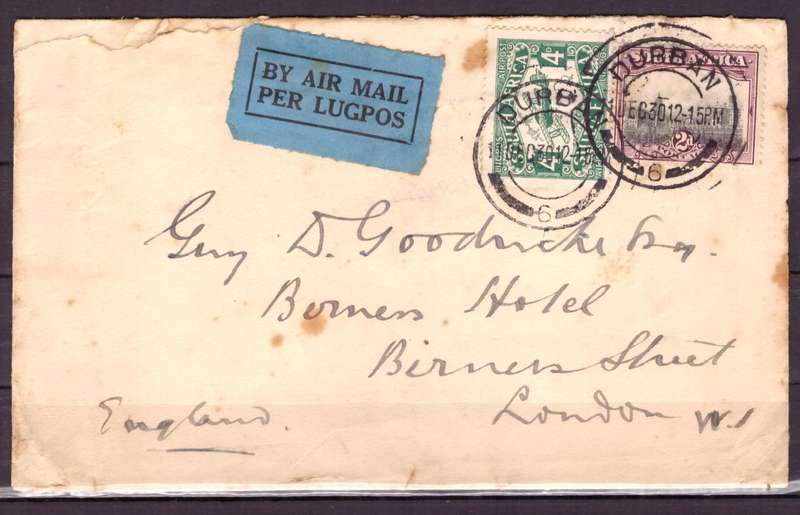 BY AIR MAIL
PER LUGPOS
AIR POST
4D
DURBAN
DEC 30 12-15
6
DURBAN
DEC 30 12-15PM
6
2D
Guy D. Goodricke Esq.
Berners Hotel
Berners Street
London W.1
England.